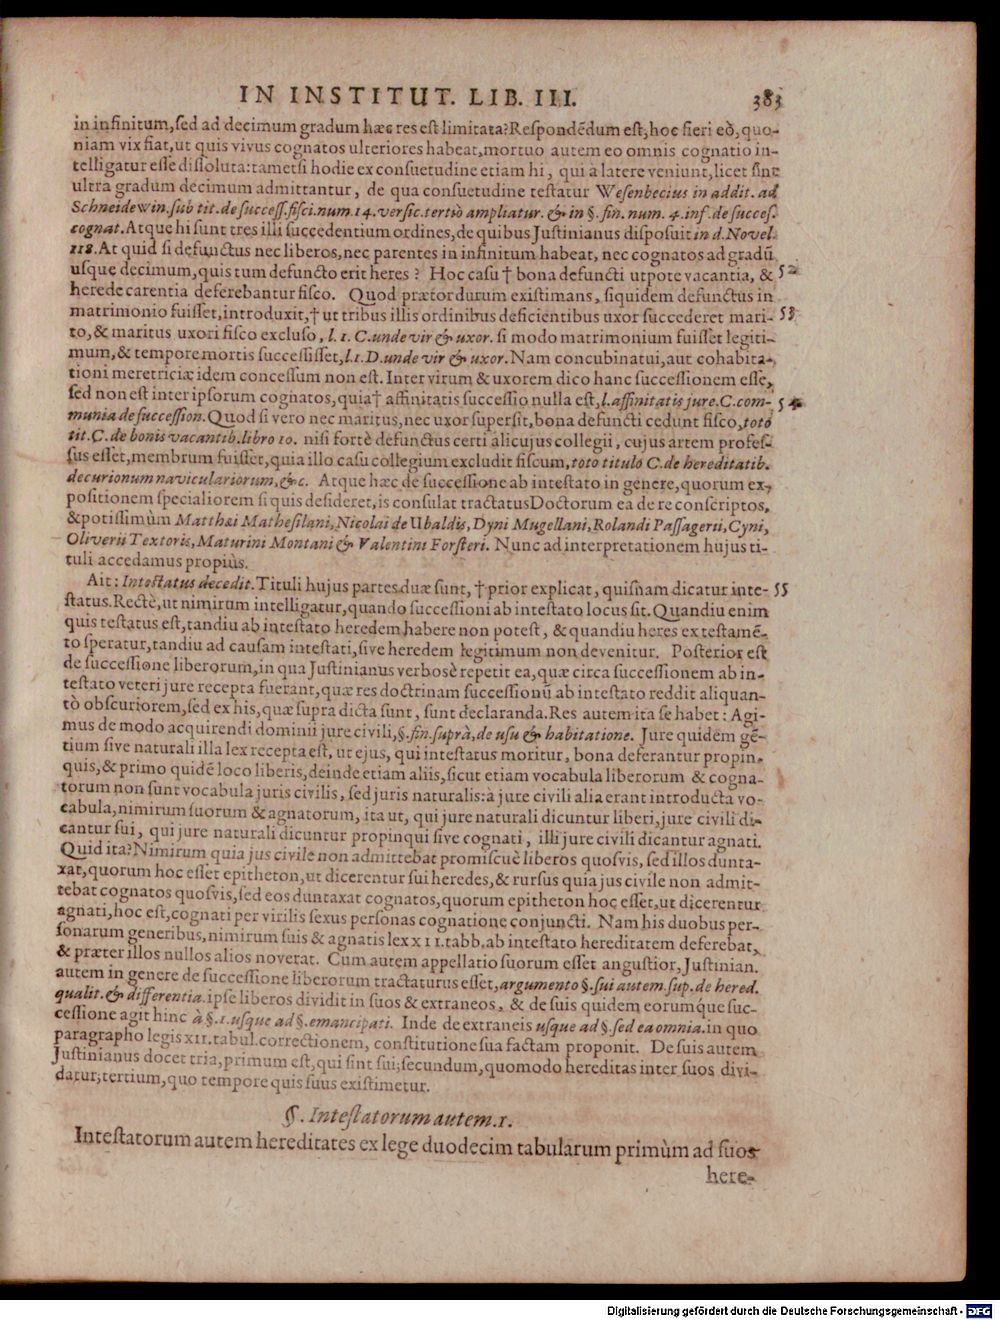 IN INSTITUT. LIB. III. 383
in infinitum, sed ad decimum gradum hæc res est limitata? Respondēdum est, hoc fieri eò, quo-
niam vix fiat, ut quis vivus cognatos ulteriores habeat, mortuo autem eo omnis cognatio in-
telligatur esse dissoluta: tametsi hodie ex consuetudine etiam hi, qui a latere veniunt, licet sint
ultra gradum decimum admittantur, de qua consuetudine testatur Wesenbecius in addit. ad
Schneidewin. sub tit. de success. fisci. num. 14. versic. tertiò ampliatur. & in §. fin. num. 4. inf. de succes.
cognat. Atque hi sunt tres illi succedentium ordines, de quibus Justinianus disposuit in d. Novel.
118. At quid si defunctus nec liberos, nec parentes in infinitum habeat, nec cognatos ad gradū
usque decimum, quis tum defuncto erit heres? Hoc casu † bona defuncti utpote vacantia, & 52
herede carentia deferebantur fisco. Quod prætor durum existimans, siquidem defunctus in
matrimonio fuisset, introduxit, † ut tribus illis ordinibus deficientibus uxor succederet mari- 53
to, & maritus uxori fisco excluso, l. 1. C. unde vir & uxor. si modo matrimonium fuisset legiti-
mum, & tempore mortis successisset, l. 1. D. unde vir & uxor. Nam concubinatui, aut cohabita-
tioni meretriciæ idem concessum non est. Inter virum & uxorem dico hanc successionem esse,
sed non est inter ipsorum cognatos, quia † affinitatis successio nulla est, l. affinitatis jure. C. com- 54
munia de succession. Quod si vero nec maritus, nec uxor supersit, bona defuncti cedunt fisco, toto
tit. C. de bonis vacantib. libro 10. nisi fortè defunctus certi alicujus collegii, cujus artem profes-
sus esset, membrum fuisset, quia illo casu collegium excludit fiscum, toto titulo C. de hereditatib.
decurionum naviculariorum, &c. Atque hæc de successione ab intestato in genere, quorum ex-
positionem specialiorem si quis desideret, is consulat tractatus Doctorum ea de re conscriptos,
& potissimùm Matthæi Mathesilani, Nicolai de Ubaldis, Dyni Mugellani, Rolandi Passagerii, Cyni,
Oliverii Textoris, Maturini Montani & Valentini Forsteri. Nunc ad interpretationem hujus ti-
tuli accedamus propiùs.
Ait: Intestatus decedit. Tituli hujus partes duæ sunt, † prior explicat, quisnam dicatur inte- 55
status. Rectè, ut nimirum intelligatur, quando successioni ab intestato locus sit. Quandiu enim
quis testatus est, tandiu ab intestato heredem habere non potest, & quandiu heres ex testamē-
to speratur, tandiu ad causam intestati, sive heredem legitimum non devenitur. Posterior est
de successione liberorum, in qua Justinianus verbosè repetit ea, quæ circa successionem ab in-
testato veteri jure recepta fuerant, quæ res doctrinam successionū ab intestato reddit aliquan-
tò obscuriorem, sed ex his, quæ supra dicta sunt, sunt declaranda. Res autem ita se habet: Agi-
mus de modo acquirendi dominii jure civili, §. fin. suprà, de usu & habitatione. Jure quidem gē-
tium sive naturali illa lex recepta est, ut ejus, qui intestatus moritur, bona deferantur propin-
quis, & primo quidē loco liberis, deinde etiam aliis, sicut etiam vocabula liberorum & cogna-
torum non sunt vocabula juris civilis, sed juris naturalis: à jure civili alia erant introducta vo-
cabula, nimirum suorum & agnatorum, ita ut, qui jure naturali dicuntur liberi, jure civili di-
cantur sui, qui jure naturali dicuntur propinqui sive cognati, illi jure civili dicantur agnati.
Quid ita? Nimirum quia jus civile non admittebat promiscuè liberos quosvis, sed illos dunta-
xat, quorum hoc esset epitheton, ut dicerentur sui heredes, & rursus quia jus civile non admit-
tebat cognatos quosvis, sed eos duntaxat cognatos, quorum epitheton hoc esset, ut dicerentur
agnati, hoc est, cognati per virilis sexus personas cognatione conjuncti. Nam his duobus per-
sonarum generibus, nimirum suis & agnatis lex XII. tabb. ab intestato hereditatem deferebat,
& præter illos nullos alios noverat. Cum autem appellatio suorum esset angustior, Justinian.
autem in genere de successione liberorum tractaturus esset, argumento §. sui autem. sup. de hered.
qualit. & differentia. ipse liberos dividit in suos & extraneos, & de suis quidem eorumque suc-
cessione agit hinc à §. 1. usque ad §. emancipati. Inde de extraneis usque ad §. sed ea omnia. in quo
paragrapho legis XII. tabul. correctionem, constitutione sua factam proponit. De suis autem
Justinianus docet tria, primum est, qui sint sui; secundum, quomodo hereditas inter suos divi-
datur; tertium, quo tempore quis suus existimetur.
§. Intestatorum autem. 1.
Intestatorum autem hereditates ex lege duodecim tabularum primùm ad suos
here-
Digitalisierung gefördert durch die Deutsche Forschungsgemeinschaft - DFG